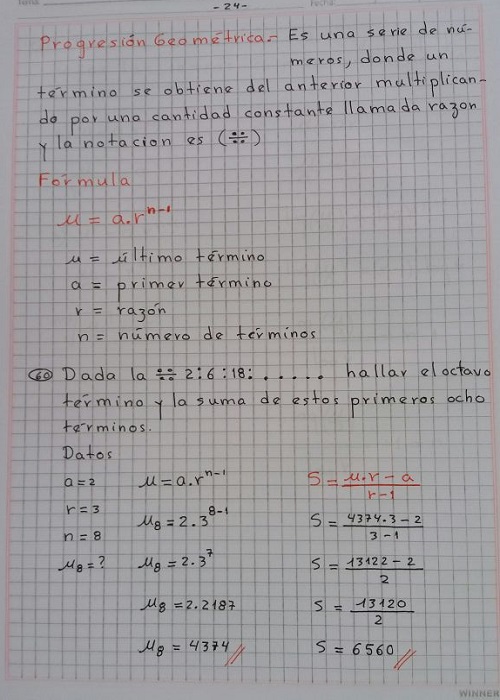 -24-
Progresión Geométrica.- Es una serie de nú-
meros, donde un
término se obtiene del anterior multiplican-
do por una cantidad constante llamada razon
y la notacion es (∺)
Fórmula
u = a.rⁿ⁻¹
u = último término
a = primer término
r = razón
n = número de términos
60 Dada la ∺ 2:6:18:..... hallar el octavo
término y la suma de estos primeros ocho
términos.
Datos
a = 2 u = a.rⁿ⁻¹ S = (u.r - a)/(r - 1)
r = 3 u₈ = 2.3⁸⁻¹ S = (4374.3 - 2)/(3 - 1)
n = 8
u₈ = ? u₈ = 2.3⁷ S = (13122 - 2)/2
u₈ = 2.2187 S = 13120/2
u₈ = 4374// S = 6560//
WINNER